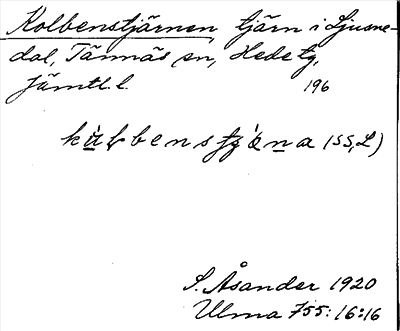 Kolbenstjärnen, tjärn i Ljusne-
dal, Tännäs sn, Hede tg,
Jämtl. l. 196
(SS, L)
S. Åsander 1920
Ulma 755:16:16